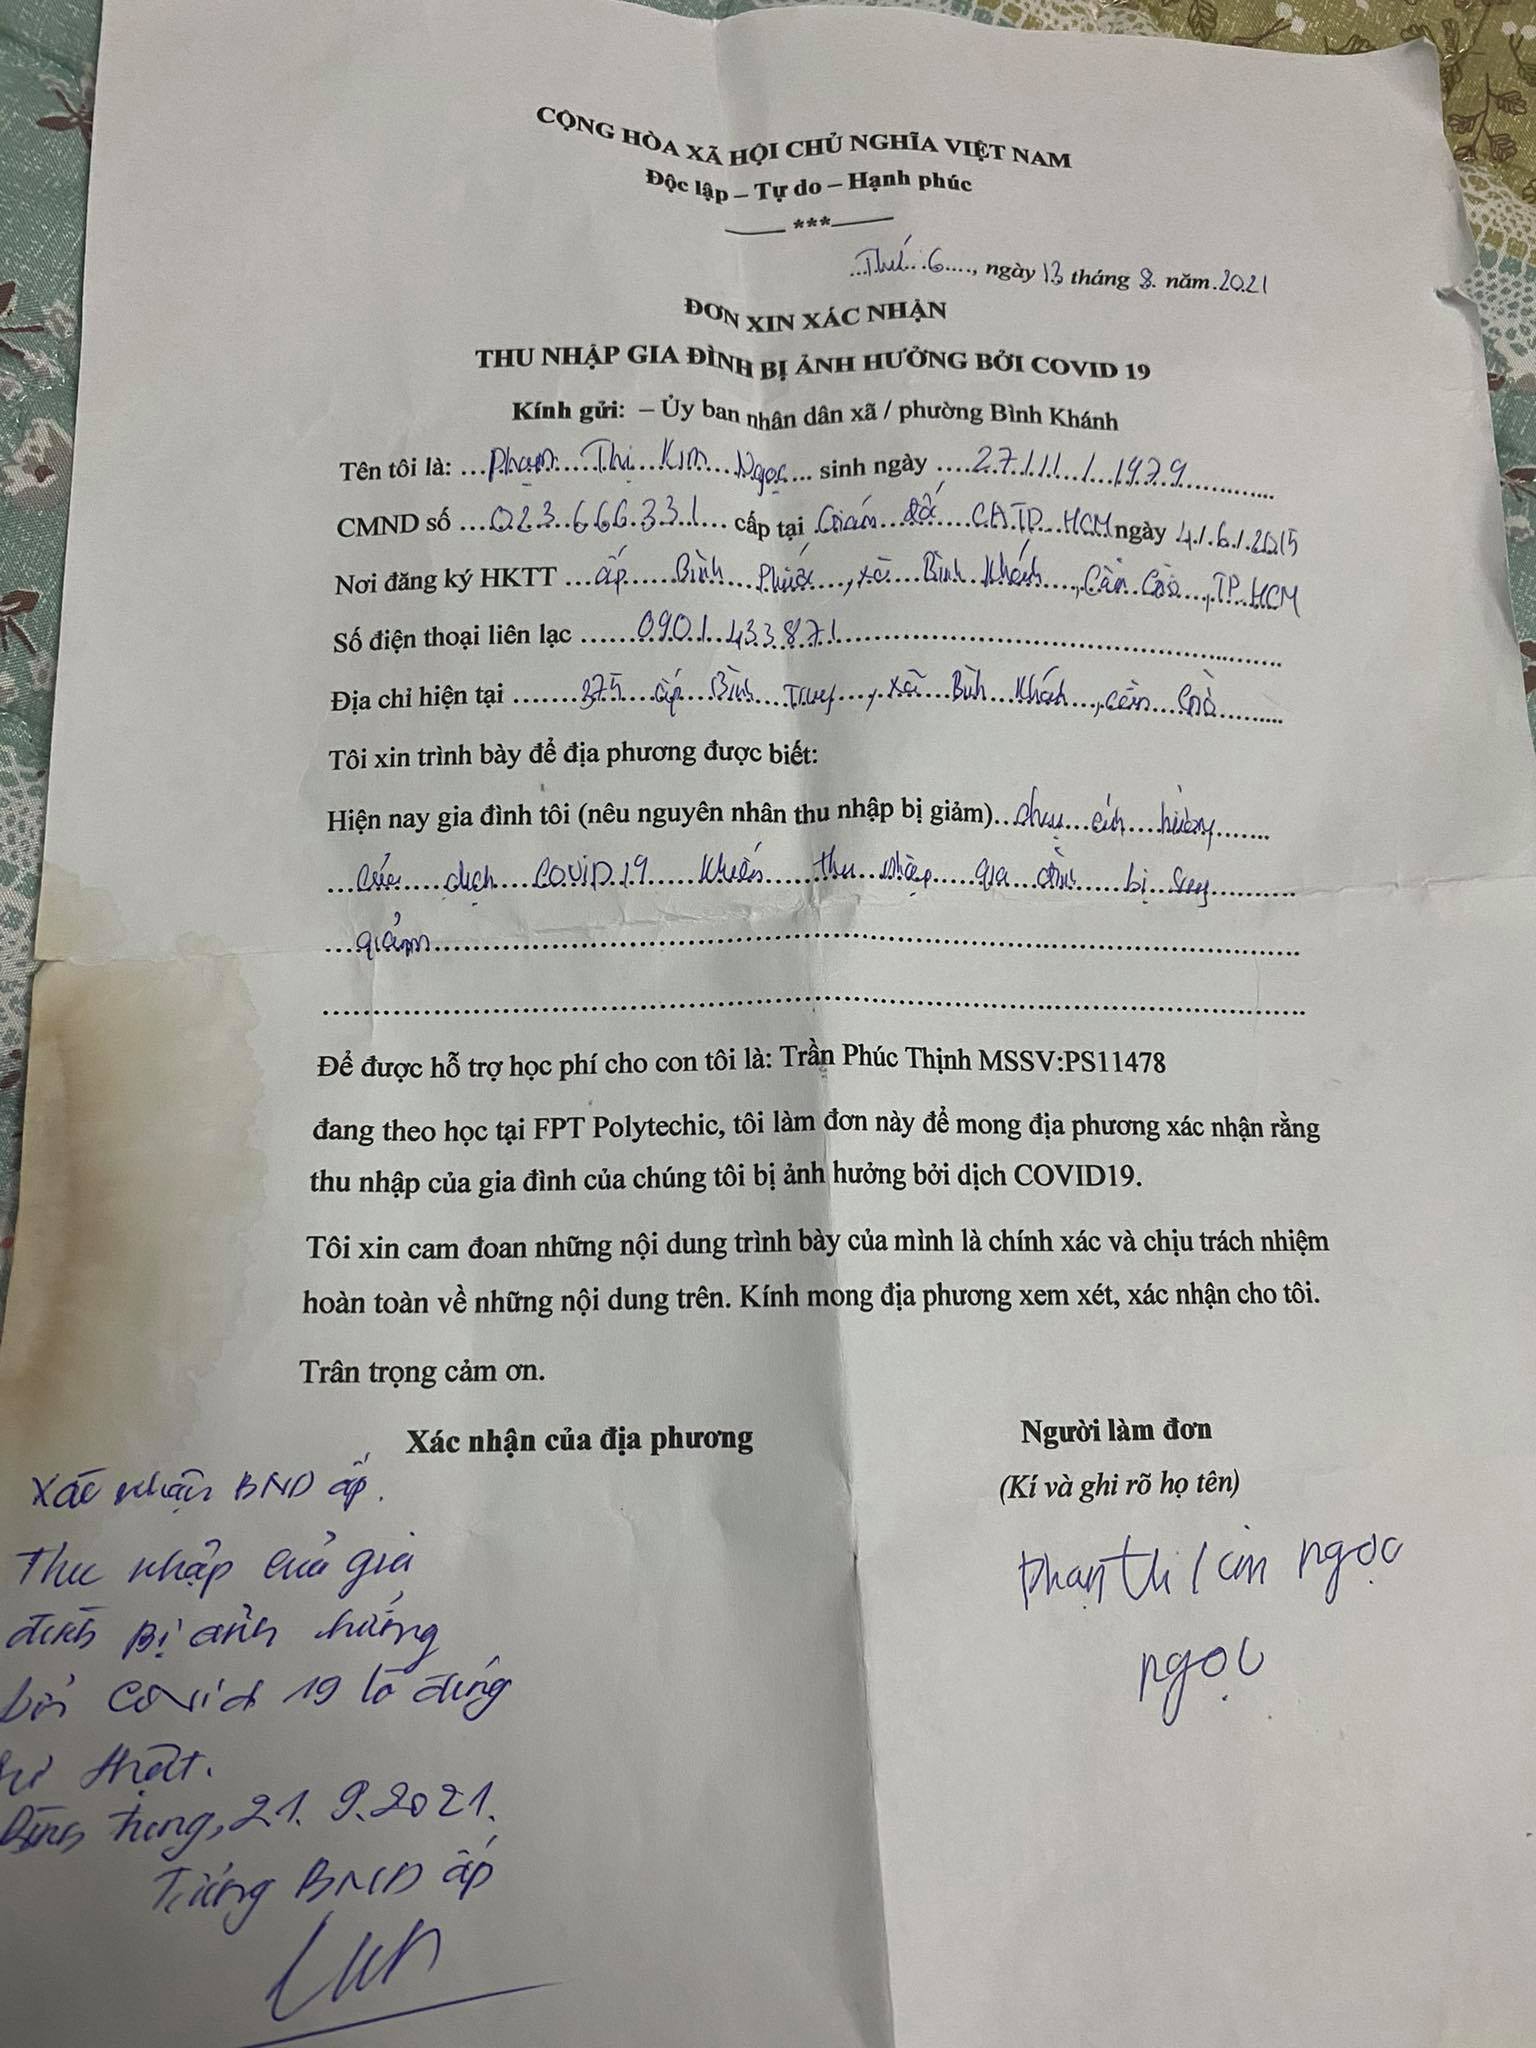 CỘNG HÒA XÃ HỘI CHỦ NGHĨA VIỆT NAM
Độc lập – Tự do – Hạnh phúc
***
Thứ 6, ngày 13 tháng 8 năm 2021
ĐƠN XIN XÁC NHẬN
THU NHẬP GIA ĐÌNH BỊ ẢNH HƯỞNG BỞI COVID 19
Kính gửi: – Ủy ban nhân dân xã / phường Bình Khánh
Tên tôi là: Phạm Thị Kim Ngọc sinh ngày 27/11/1979
CMND số 023666331 cấp tại Giám đốc CATP HCM ngày 4/6/2015
Nơi đăng ký HKTT ấp Bình Phước, xã Bình Khánh, Cần Giờ, TP HCM
Số điện thoại liên lạc 0901433871
Địa chỉ hiện tại 375 ấp Bình Trung, xã Bình Khánh, Cần Giờ
Tôi xin trình bày để địa phương được biết:
Hiện nay gia đình tôi (nêu nguyên nhân thu nhập bị giảm) chịu ảnh hưởng
của dịch COVID 19 khiến thu nhập gia đình bị suy
giảm
Để được hỗ trợ học phí cho con tôi là: Trần Phúc Thịnh MSSV:PS11478
đang theo học tại FPT Polytechic, tôi làm đơn này để mong địa phương xác nhận rằng
thu nhập của gia đình của chúng tôi bị ảnh hưởng bởi dịch COVID19.
Tôi xin cam đoan những nội dung trình bày của mình là chính xác và chịu trách nhiệm
hoàn toàn về những nội dung trên. Kính mong địa phương xem xét, xác nhận cho tôi.
Trân trọng cảm ơn.
Xác nhận của địa phương
Xác nhận BND ấp.
Thu nhập của gia
đình bị ảnh hưởng
bởi Covid 19 là đúng
sự thật.
Bình Trung, 21.9.2021.
Trưởng BND ấp
Người làm đơn
(Kí và ghi rõ họ tên)
Phạm Thị Kim Ngọc
Ngọc